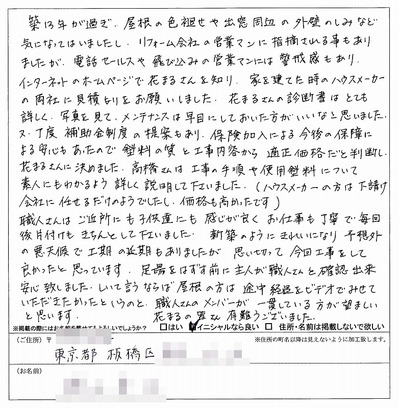 築13年が過ぎ、屋根の色褪せや出窓周辺の外壁のしみなど
気になってはいましたし、リフォーム会社の営業マンに指摘される事もあり
ましたが、電話セールスや飛び込みの営業マンには警戒感もあり、
インターネットのホームページで花まるさんを知り、家を建てた時のハウスメーカー
の両社に見積もりをお願いしました。花まるさんの診断書はとても
詳しく、写真を見て、メンテナンスは早目にしておいた方がいいなと思いました。
又、丁度、補助金制度の提案もあり、保険加入による今後の保障に
よる安心もあったので塗料の質と工事内容から適正価格だと判断し、
花まるさんに決めました。高橋さんは工事の手順や使用塗料について
素人にもわかるよう詳しく説明して下さいました。(ハウスメーカーの方は下請け
会社に任せるだけのようでしたし、価格も高かったです)
職人さんはご近所にも子供達にも感じが良くお仕事も丁寧で毎回
後片付けもきちんとして下さいました。新築のようにきれいになり予想外
の悪天候で工期の延期もありましたが思い切って今回工事をして
良かったと思っています。足場をはずす前に主人が職人さんと確認出来
安心致しました。しいて言うならば屋根の方は途中経過をビデオでみせて
いただきたかったというのと、職人さんのメンバーが一貫している方が望ましい
と思います。花まるの皆さん有難うございました。
※掲載の際にはお名前を載せてもよろしいでしょうか? □はい ☑イニシャルなら良い □住所・名前は掲載しないで欲しい
(ご住所)〒 ※住所の町名以降は見えないように加工致します。
東京都 板橋区
(お名前)